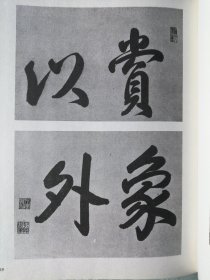 賞以
象外